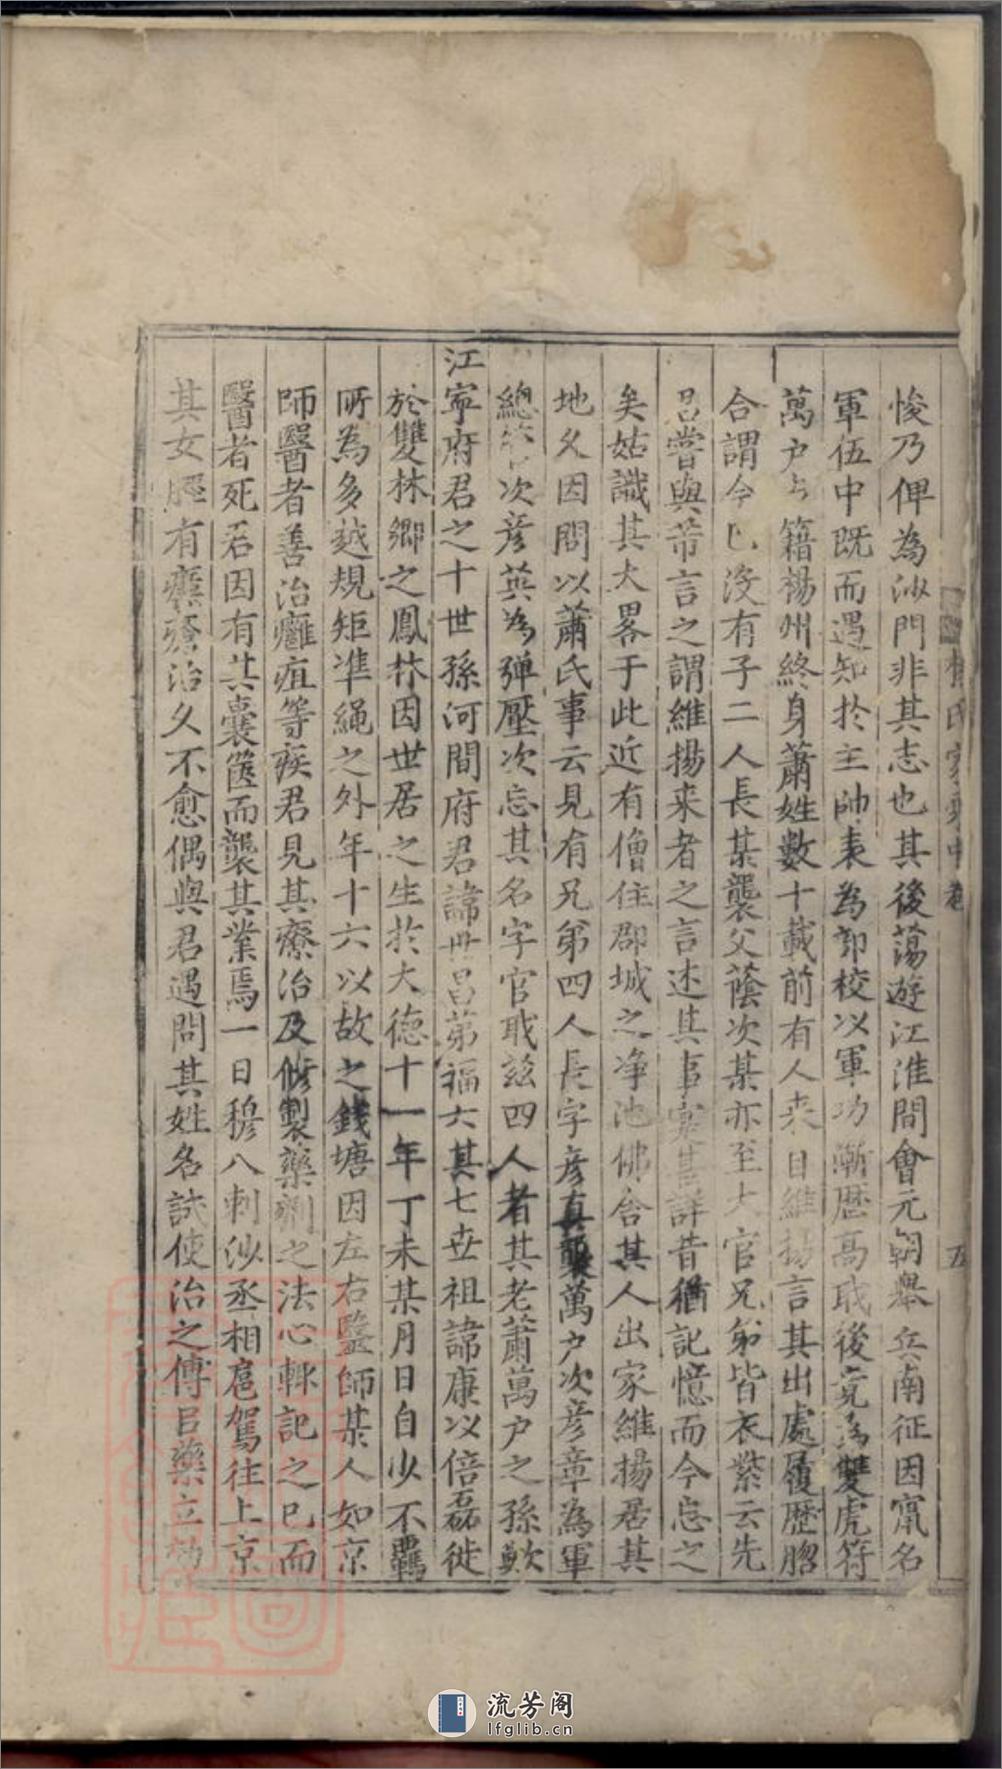 悛乃俾為沙門非其志也其後蕩遊江淮間會元朝舉兵南征因竄名
軍伍中既而遇知於主帥表為部校以軍功漸歷高職後竟為雙虎符
萬户占籍楊州終身蕭姓數十載前有人来自維揚言其出處履歷脗
合謂今已沒有子二人長某襲父蔭次某亦至大官兄弟皆衣紫云先
君嘗與芾言之謂維揚来者之言述其事寔甚詳昔猶記憶而今忘之
矣姑識其大畧于此近有僧住郡城之净池佛舎其人出家維揚居其
地久因問以蕭氏事云見有兄弟四人長字彦真襲萬户次彦章為軍
總管次彦英為彈壓次忘其名字官职兹四人者其老蕭萬户之孫歟
江寧府君之十世孫河間府君諱世昌苐福六其七世祖諱康以倍磊徙
於雙林鄉之鳳林因世居之生於大德十一年丁未某月日自少不羈
所為多越規矩凖繩之外年十六以故之錢塘因左右醫師某人如京
師醫者善治癰疽等疾君見其療治及修製藥劑之法心輒記之已而
醫者死君因有其囊箧而襲其業焉一日穆八刺沙丞相扈駕往上京
其女脛有瘝療治久不愈偶與君遇問其姓名試使治之傅吕藥立効
氏家 中 卷 五
流芳阁
lfglib.cn